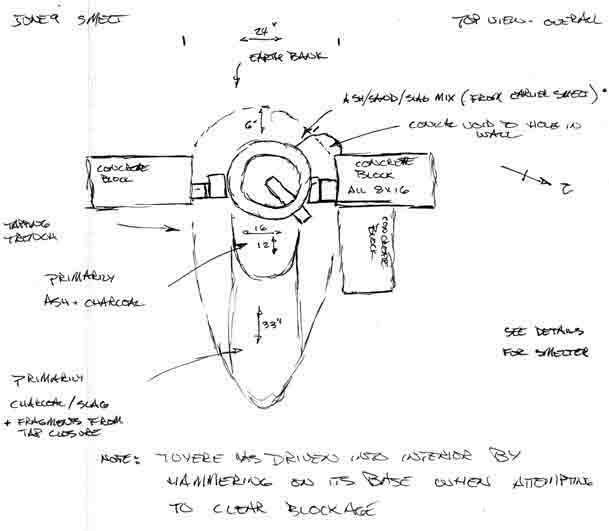 JUNE 9 SMELT
TOP VIEW - OVERALL
24"
EARTH BANK
6"
ASH/SAND/SLAG MIX (FROM EARLIER SMELT)
CONICAL VOID TO HOLE IN
WALL
CONCRETE
BLOCK
CONCRETE
BLOCK
ALL 8X16
CONCRETE
BLOCK
TAPPING
TRENCH
16
12
PRIMARILY
ASH + CHARCOAL
33"
SEE DETAILS
FOR SMELTER
PRIMARILY
CHARCOAL/SLAG
+ FRAGMENTS FROM
TAP CLOSURE
NOTE: TUYERE WAS DRIVEN INTO INTERIOR BY
HAMMERING ON ITS BASE WHEN ATTEMPTING
TO CLEAR BLOCKAGE